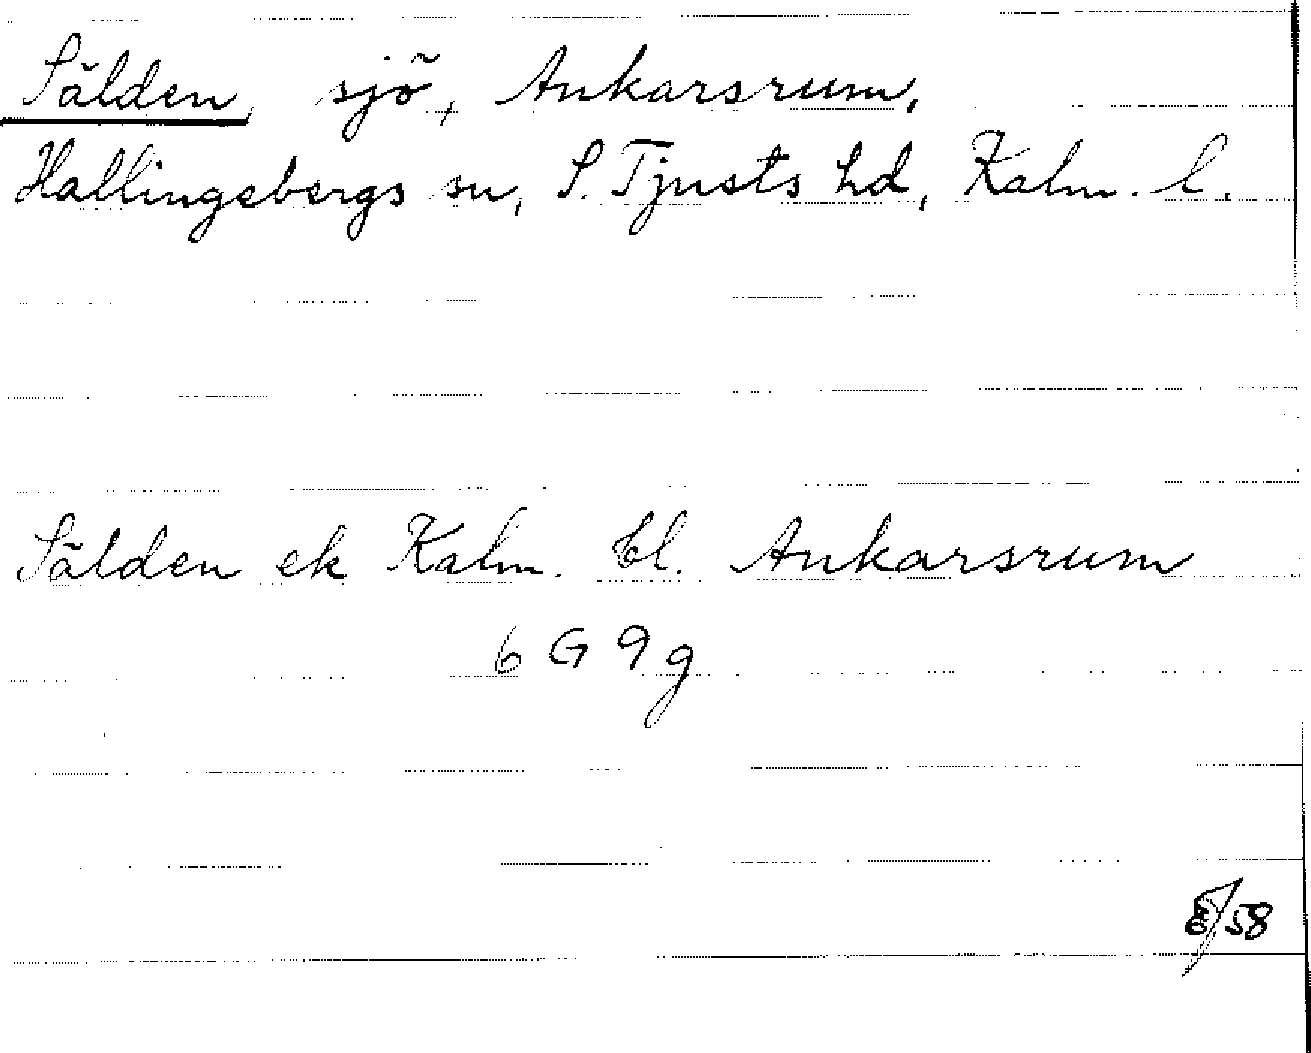 Sälden, sjö, Ankarsrum,
Hallingebergs sn, S. Tjusts hd, Kalm. l.
Sälden ek Kalm. bl. Ankarsrum
6 G 9 g
/58